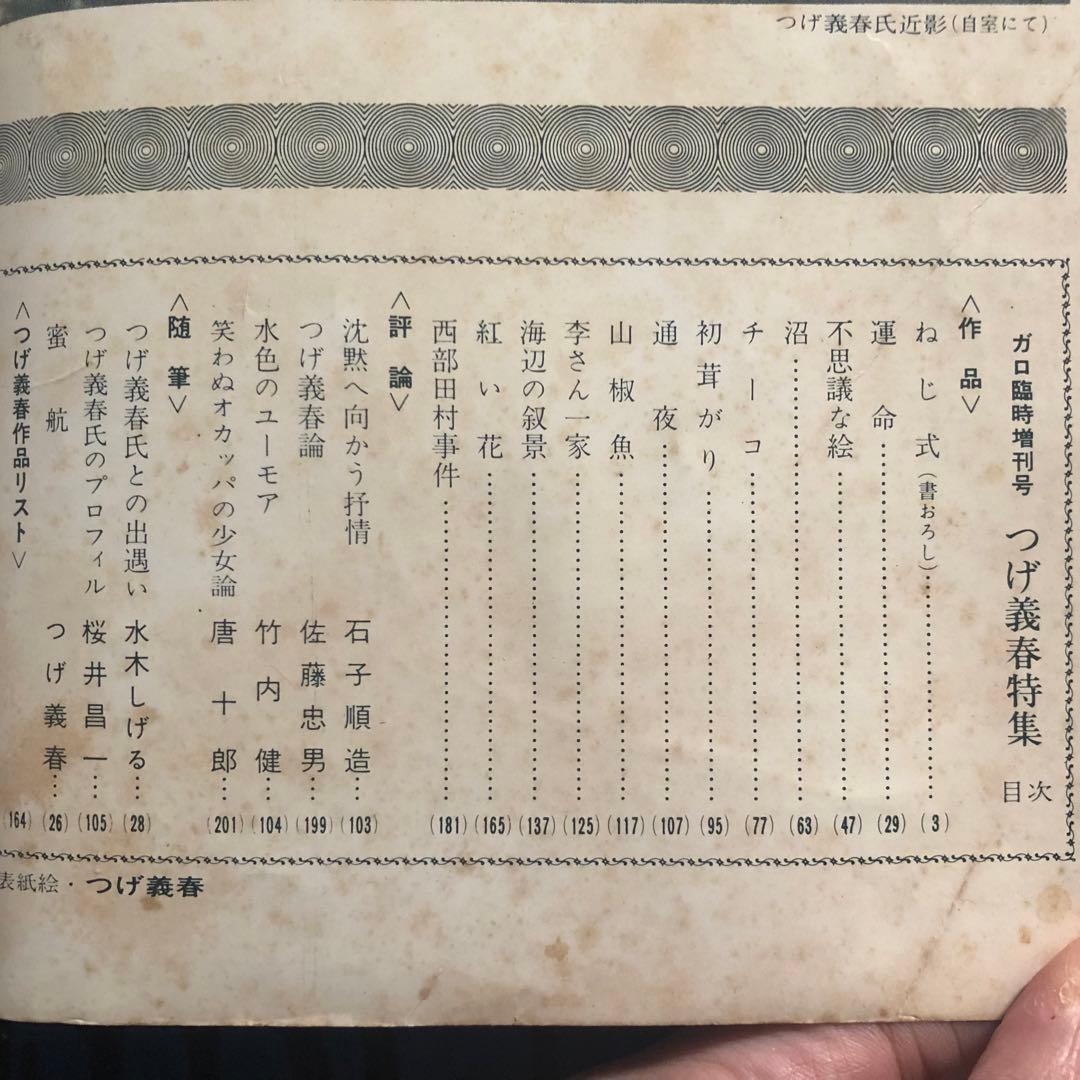 つげ義春氏近影(自室にて)
ガロ臨時増刊号 つげ義春特集 目次
<作品>
ねじ式(書おろし)……(3)
運命……(29)
不思議な絵……(47)
沼……(63)
チーコ……(77)
初茸がり……(95)
通夜……(107)
山椒魚……(117)
李さん一家……(125)
海辺の叙景……(137)
紅い花……(165)
西部田村事件……(181)
<評論>
沈黙へ向かう抒情 石子順造…(103)
つげ義春論 佐藤忠男…(199)
水色のユーモア 竹内健…(104)
笑わぬオカッパの少女論 唐十郎…(201)
<随筆>
つげ義春氏との出遇い 水木しげる…(28)
つげ義春氏のプロフィル 桜井昌一…(105)
蜜航 つげ義春…(26)
<つげ義春作品リスト> (164)
表紙絵・つげ義春